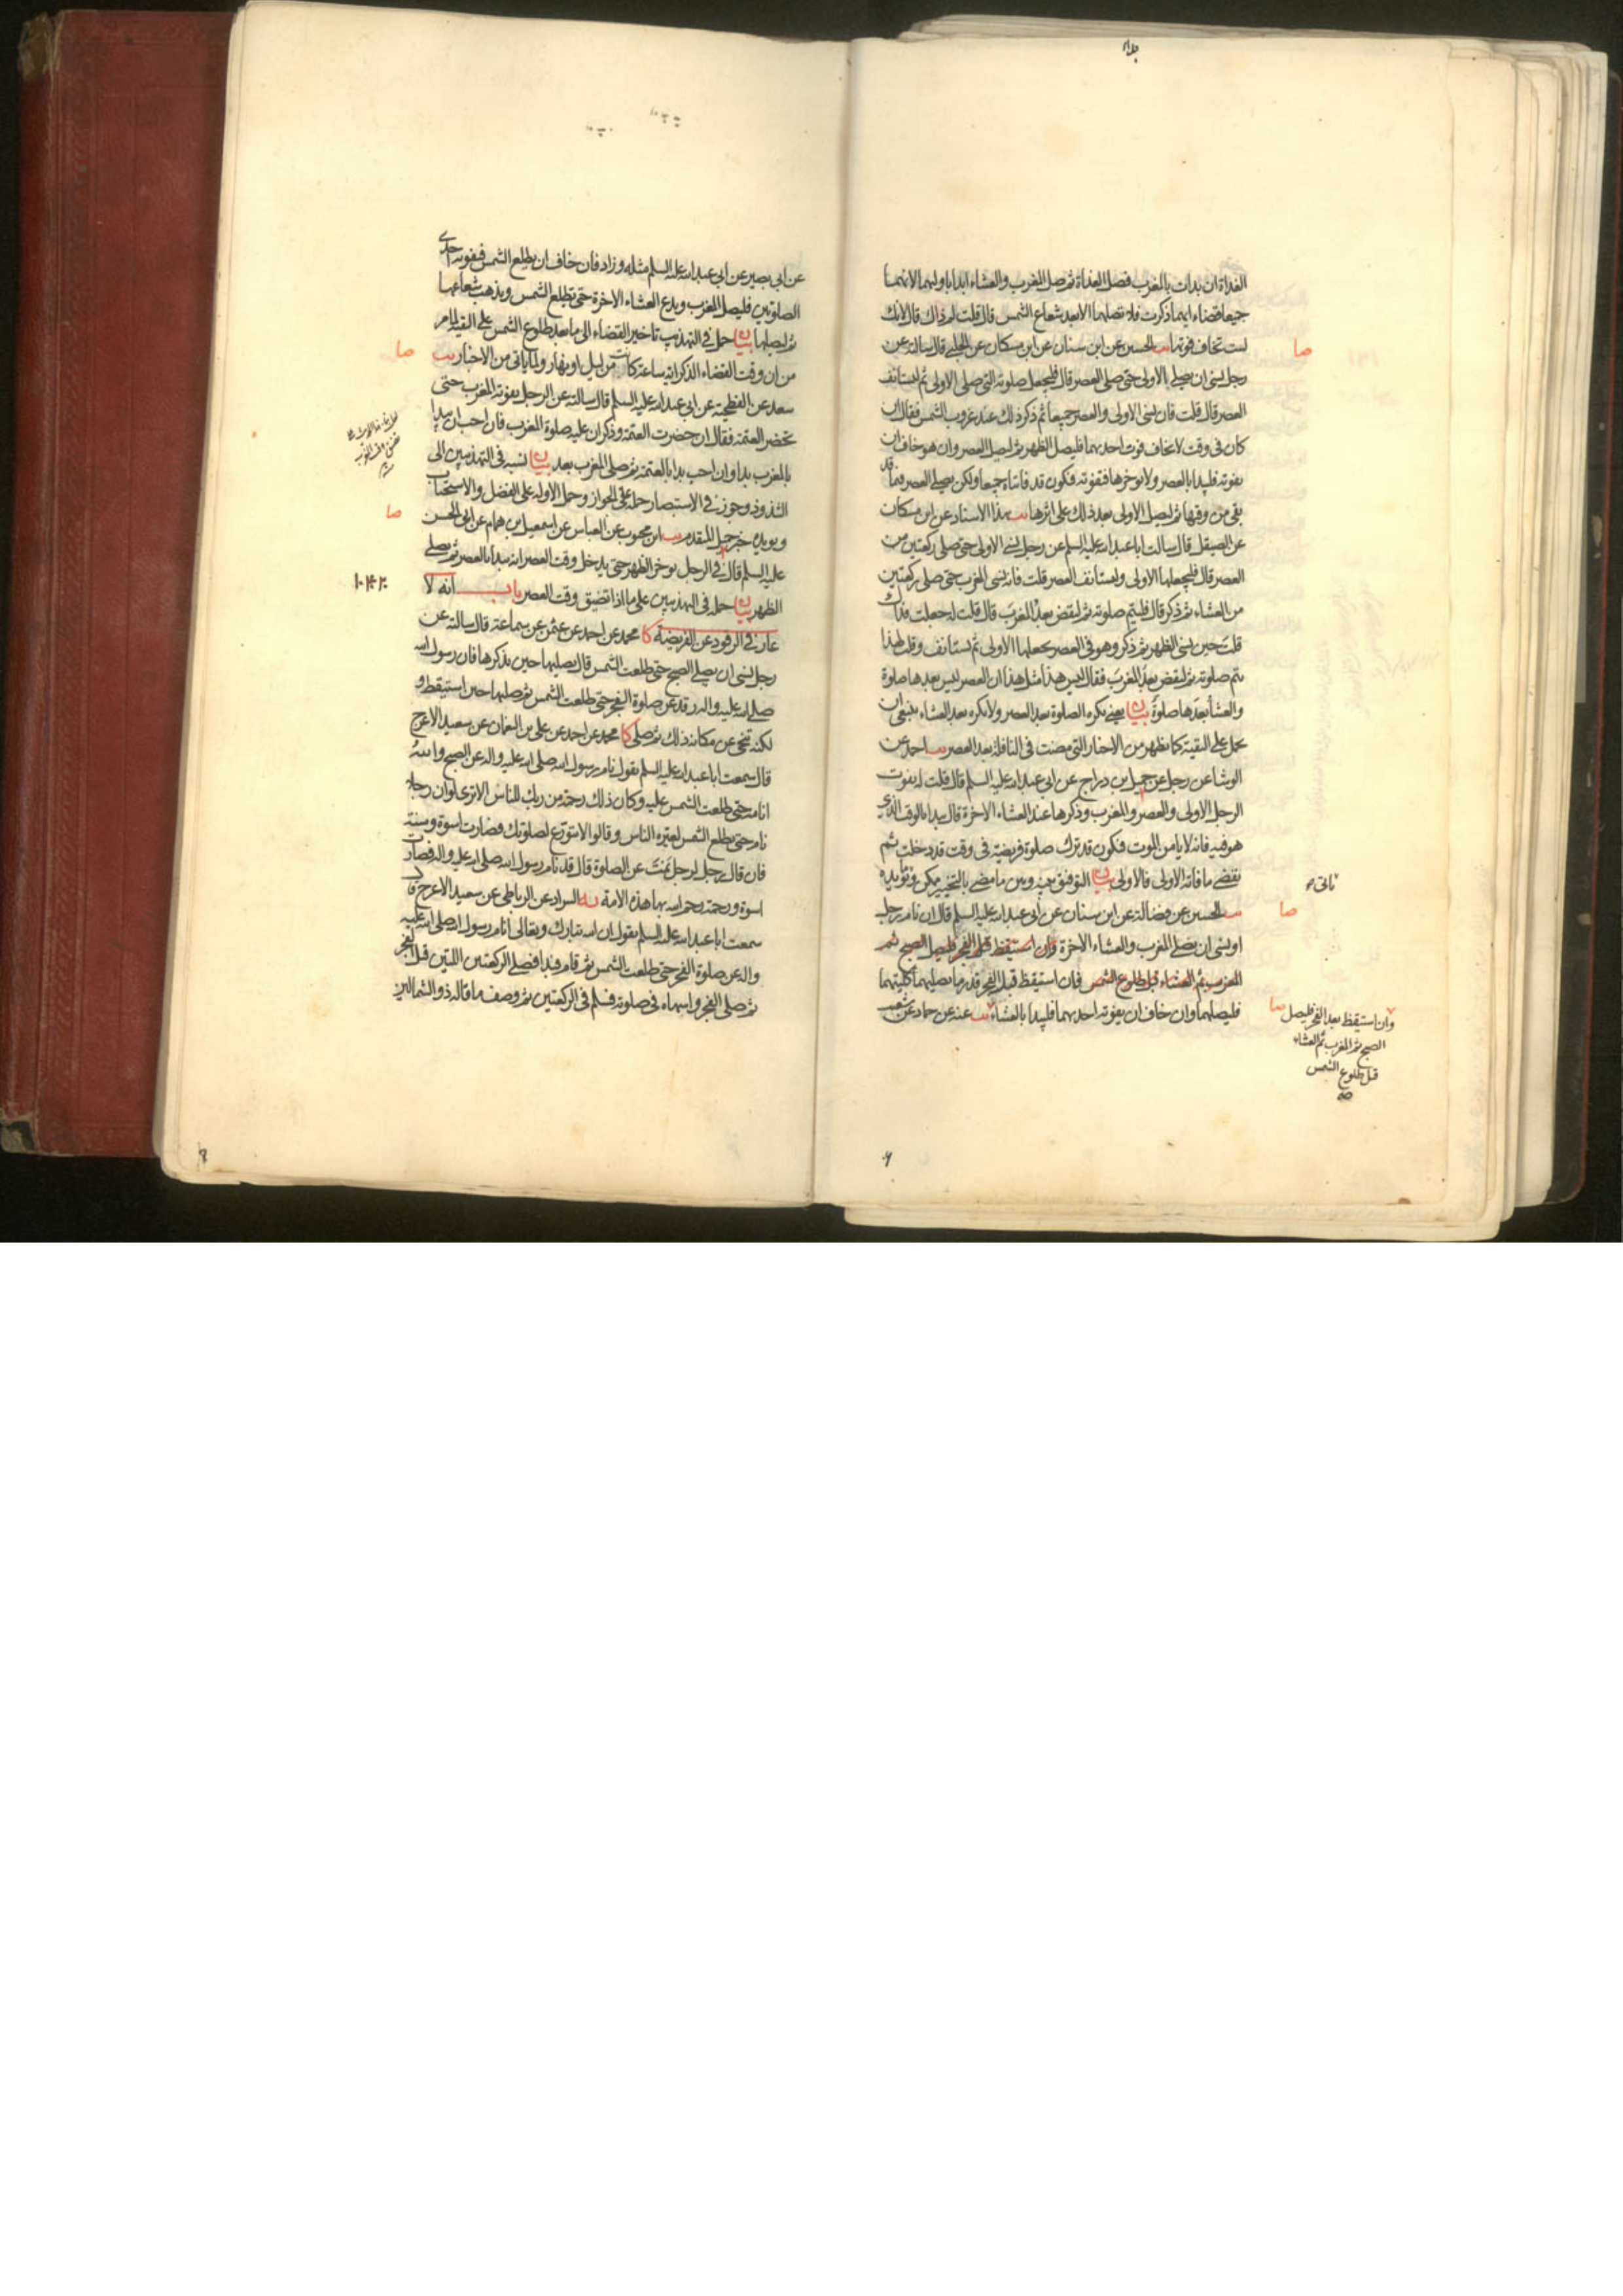 الغداة ان بدات بالمغرب فصل الغداة ثم صل المغرب والعشاء ابدا باولهما لانهما
جميعا قضاء ايهما ذكرت فلا تصلهما الا بعد شعاع الشمس قال قلت لم ذاك قال لانك
لست تخاف فوتها يب الحسين عن ابن سنان عن ابن مسكان عن الحلبي قال سالته عن
رجل نسى ان يصلي الاولى حتى صلى العصر قال فليجعل صلوته التي صلى الاولى ثم ليستانف
العصر قال قلت فان نسى الاولى والعصر جميعا ثم ذكر ذلك عند غروب الشمس فقال ان
كان في وقت لا يخاف فوت احديهما فليصل الظهر ثم ليصل العصر وان هو خاف ان
يفوته فليبدا بالعصر ولا يوخرها فتفوته فتكون قد فاتتاه جميعا ولكن يصلي العصر فيما قد
بقي من وقتها ثم ليصل الاولى بعد ذلك على اثرها يب بهذا الاسناد عن ابن مسكان
عن الصيقل قال سالت ابا عبد الله عليه السلم عن رجل نسي الاولى حتى صلى ركعتين من
العصر قال فليجعلها الاولى وليستانف العصر قلت فانه نسى المغرب حتى صلى ركعتين
من العشاء ثم ذكر قال فليتم صلوته ثم ليقض بعد المغرب قال قلت له جعلت فداك
قلت حين نسى الظهر ثم ذكر وهو في العصر يجعلها الاولى ثم يستانف وقلت لهذا
يتم صلوته ثم ليقض بعد المغرب فقال ليس هذا مثل هذا ان العصر ليس بعدها صلوة
والعشاء بعدها صلوة بيان يعني يكره الصلوة بعد العصر ولا يكره بعد العشاء ينبغي ان
يحمل على التقية كما يظهر من الاخبار التي مضت في النافلة بعد العصر يب احمد عن
الوشا عن رجل عن جميل بن دراج عن ابي عبد الله عليه السلم قال قلت له يفوت
الرجل الاولى والعصر والمغرب وذكرها عند العشاء الاخرة قال يبدا بالوقت الذي
هو فيه فانه لا يامن الموت فيكون قد ترك صلوة فريضة في وقت قد دخلت ثم
يقضي ما فاته الاولى فالاولى بيان التوفيق بينه وبين ما مضى بالتخيير ممكن ويؤيده
يب الحسين عن فضالة عن ابن سنان عن ابي عبد الله عليه السلم قال ان نام رجل
او نسى ان يصلي المغرب والعشاء الاخرة وان استيقظ قبل الفجر فليصل الصبح ثم
المغرب ثم العشاء قبل طلوع الشمس فان استيقظ قبل الفجر قدر ما يصليهما كلتيهما
فليصلهما وان خاف ان يفوته احديهما فليبدا بالعشاء يب عنه عن حماد عن شعيب
صا
صا
وان استيقظ بعد الفجر فليصل صا
الصبح ثم المغرب ثم العشاء
قبل طلوع الشمس
صح
عن ابي بصير عن ابي عبد الله عليه السلم مثله وزاد فان خاف ان يطلع الشمس فيفوته احدى
الصلوتين فليصل المغرب ويدع العشاء الاخرة حتى تطلع الشمس ويذهب شعاعها
ثم ليصلها بيان حمل في التهذيب تاخير القضاء الى ما بعد طلوع الشمس على التقية لما مر
من ان وقت القضاء الذكر اية ساعة كانت من ليل او نهار ولما ياتي من الاخبار يب
سعد عن الفطحية عن ابي عبد الله عليه السلم قال سالته عن الرجل يفوته المغرب حتى
تحضر العتمة فقال ان حضرت العتمة وذكر ان عليه صلوة المغرب فان احب ان يبدا
بالمغرب بدا وان احب بدا بالعتمة ثم صلى المغرب بعد بيان نسبه في التهذيبين الى
الشذوذ وجوز في الاستبصار حمله على الجواز وحمل الاولة على الفضل والاستحباب
ويؤيده خبر جميل المتقدم يب ابن محبوب عن العباس عن اسمعيل بن همام عن ابي الحسن
عليه السلم قال في الرجل يوخر الظهر حتى يدخل وقت العصر انه يبدا بالعصر ثم يصلي
الظهر بيان حمله في التهذيبين على ما اذا تضيق وقت العصر باب انه لا
عار في الرقود عن الفريضة كا محمد عن احمد عن عثمن عن سماعة قال سالته عن
رجل نسى ان يصلي الصبح حتى طلعت الشمس قال يصليها حين يذكرها فان رسول الله
صلى الله عليه واله رقد عن صلوة الفجر حتى طلعت الشمس ثم صلها حين استيقظ و
لكنه تنحى عن مكانه ذلك ثم صلى كا محمد عن احمد عن علي بن النعمان عن سعيد الاعرج
قال سمعت ابا عبد الله عليه السلم يقول نام رسول الله صلى الله عليه واله عن الصبح والله
انامه حتى طلعت الشمس عليه وكان ذلك رحمة من ربك للناس الا ترى لو ان رجلا
نام حتى يطلع الشمس لعيره الناس وقالوا لا تتورع لصلوتك فصارت اسوة وسنة
فان قال رجل لرجل نمت عن الصلوة قال قد نام رسول الله صلى الله عليه واله فصارت
اسوة ورحمة رحم الله بها هذه الامة يه السراد عن الرباطي عن سعيد الاعرج قال
سمعت ابا عبد الله عليه السلم يقول ان الله تبارك وتعالى انام رسول الله صلى الله عليه
واله عن صلوة الفجر حتى طلعت الشمس ثم قام فبدا فصلى الركعتين اللتين قبل الفجر
ثم صلى الفجر واسهاه في صلوته فسلم في الركعتين ثم وصف ما قاله ذو الشمالين
صا
صا